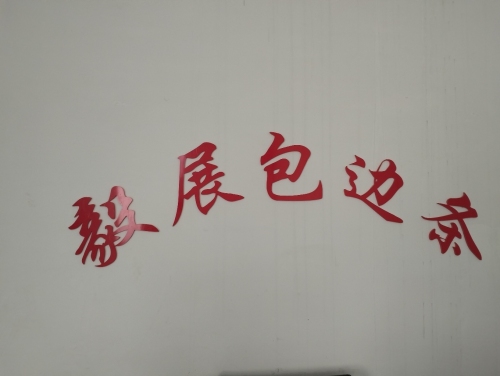 毅展包边条